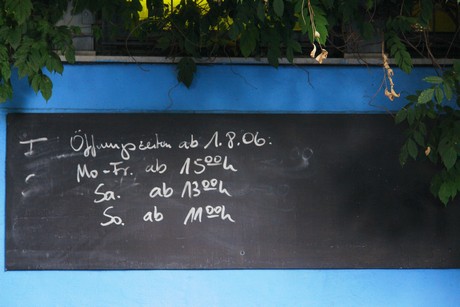 Öffnungszeiten ab 1.8.06:
Mo-Fr. ab 15⁰⁰h
Sa. ab 13⁰⁰h
So. ab 11⁰⁰h